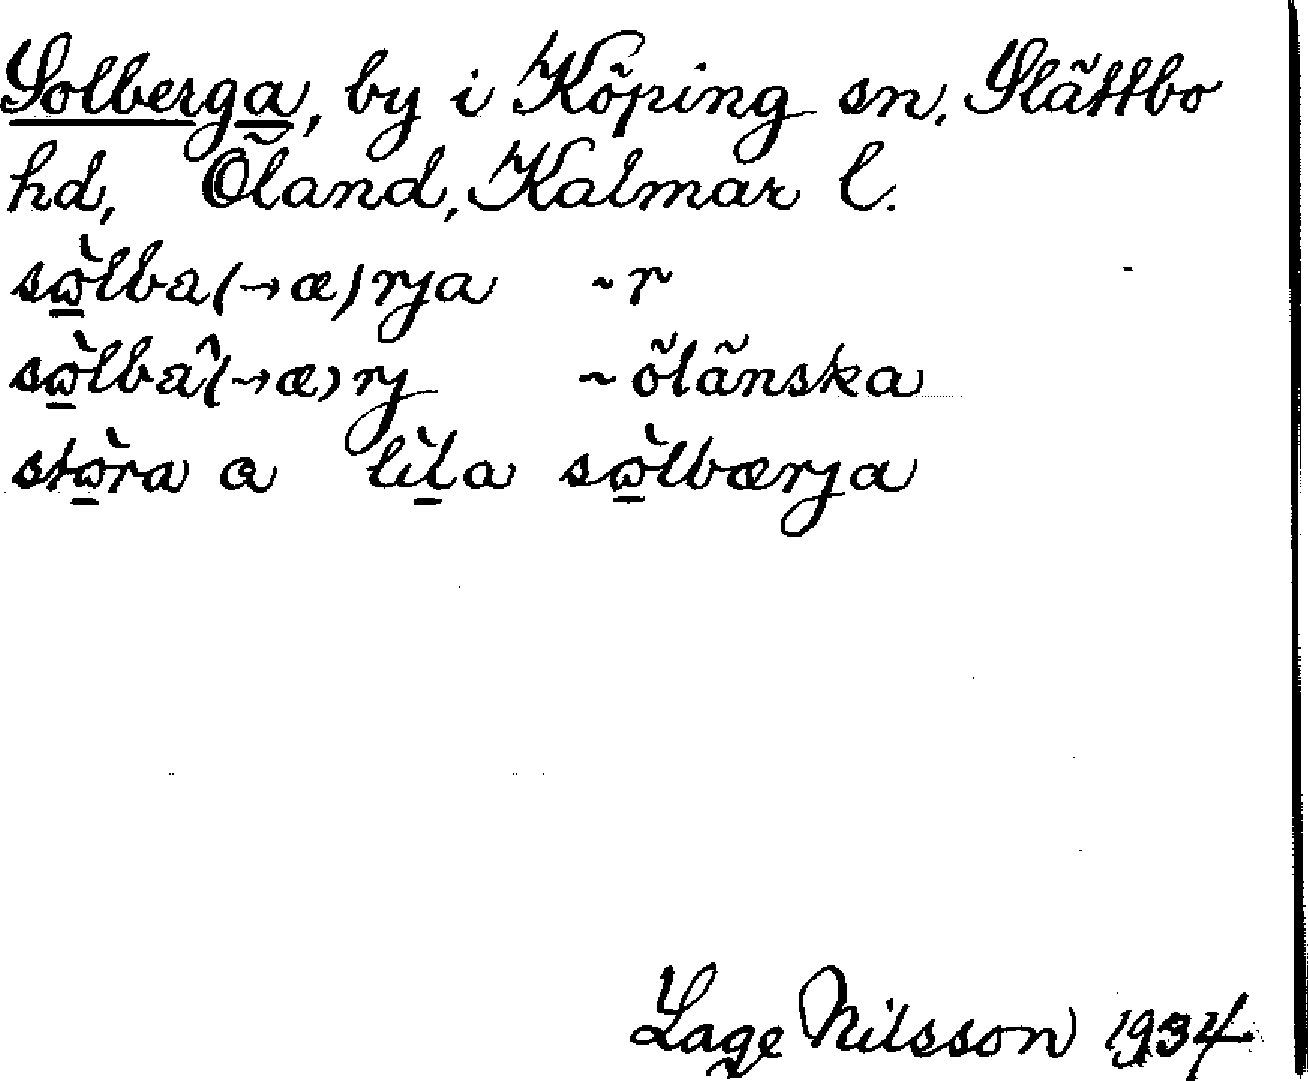 Solberga, by i Köping sn, Slättbo
hd, Öland, Kalmar l.
sɷ̠̀lba(→æ)rja ~r
sɷ̠̀lbâ(→æ)rj ~ölänska
stɷ̠̀ra a lìl̠a sɷ̠̀lbærja
Lage Nilsson 1934